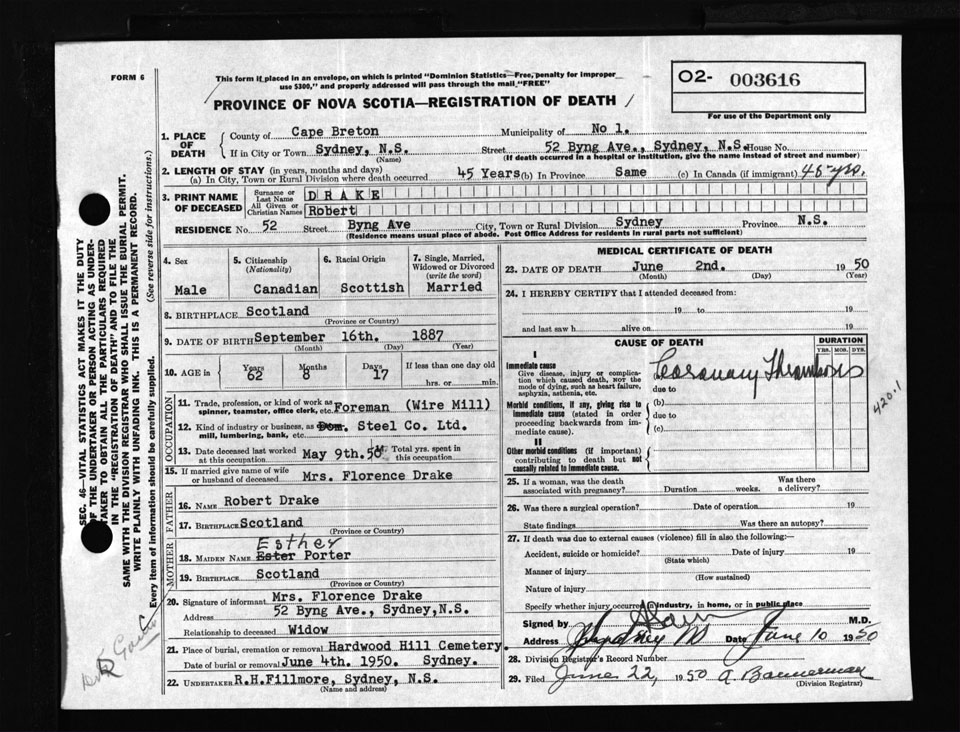 FORM 6
This form if placed in an envelope, on which is printed "Dominion Statistics—Free, penalty for improper
use $300," and properly addressed will pass through the mail "FREE"
O2- 003616
For use of the Department only
PROVINCE OF NOVA SCOTIA—REGISTRATION OF DEATH
1. PLACE OF DEATH
County of Cape Breton Municipality of No 1.
If in City or Town Sydney, N.S. Street 52 Byng Ave., Sydney, N.S. House No.
(Name) (If death occurred in a hospital or institution, give the name instead of street and number)
2. LENGTH OF STAY (in years, months and days)
(a) In City, Town or Rural Division where death occurred 45 Years (b) In Province Same (c) In Canada (if immigrant) 45 yrs.
3. PRINT NAME OF DECEASED
Surname or Last Name DRAKE
All Given or Christian Names Robert
RESIDENCE No. 52 Street Byng Ave City, Town or Rural Division Sydney Province N.S.
(Residence means usual place of abode. Post Office Address for residents in rural parts not sufficient)
4. Sex Male
5. Citizenship (Nationality) Canadian
6. Racial Origin Scottish
7. Single, Married, Widowed or Divorced (write the word) Married
8. BIRTHPLACE Scotland
(Province or Country)
9. DATE OF BIRTH September 16th. 1887
(Month) (Day) (Year)
10. AGE in Years 62 Months 8 Days 17 If less than one day old
hrs. or min.
OCCUPATION
11. Trade, profession, or kind of work as
spinner, teamster, office clerk, etc. Foreman (Wire Mill)
12. Kind of industry or business, as Dom. Steel Co. Ltd.
mill, lumbering, bank, etc.
13. Date deceased last worked at this occupation May 9th. 50 Total yrs. spent in this occupation
15. If married give name of wife
or husband of deceased Mrs. Florence Drake
FATHER
16. NAME Robert Drake
17. BIRTHPLACE Scotland
(Province or Country)
MOTHER
Esther
18. MAIDEN NAME Ester Porter
19. BIRTHPLACE Scotland
(Province or Country)
20. Signature of informant Mrs. Florence Drake
Address 52 Byng Ave., Sydney, N.S.
Relationship to deceased Widow
21. Place of burial, cremation or removal Hardwood Hill Cemetery.
Date of burial or removal June 4th. 1950. Sydney.
22. UNDERTAKER R.H.Fillmore, Sydney, N.S.
(Name and address)
MEDICAL CERTIFICATE OF DEATH
23. DATE OF DEATH June 2nd. 1950
(Month) (Day) (Year)
24. I HEREBY CERTIFY that I attended deceased from:
19 to 19
and last saw h alive on 19
CAUSE OF DEATH
DURATION
YRS. MOS. DYS.
I
Immediate cause
Give disease, injury or complica-
tion which caused death, not the
mode of dying, such as heart failure,
asphyxia, asthenia, etc.
Coronary Thrombosis
due to
420-1
Morbid conditions, if any, giving rise to
immediate cause (stated in order
proceeding backwards from im-
mediate cause).
(b)
due to
(c)
II
Other morbid conditions (if important)
contributing to death but not
causally related to immediate cause.
25. If a woman, was the death
associated with pregnancy? Duration weeks. Was there
a delivery?
26. Was there a surgical operation? Date of operation 19
State findings Was there an autopsy?
27. If death was due to external causes (violence) fill in also the following:—
Accident, suicide or homicide? Date of injury 19
(State which)
Manner of injury
(How sustained)
Nature of injury
Specify whether injury occurred in industry, in home, or in public place
Signed by M.D.
Address Sydney Date June 10 1950
28. Division Registrar's Record Number
29. Filed June 22, 1950 A. Bannerman
(Division Registrar)
SEC. 46—VITAL STATISTICS ACT MAKES IT THE DUTY
OF THE UNDERTAKER OR PERSON ACTING AS UNDER-
TAKER TO OBTAIN ALL THE PARTICULARS REQUIRED
IN THE "REGISTRATION OF DEATH" AND TO FILE THE
SAME WITH THE DIVISION REGISTRAR WHO SHALL ISSUE THE BURIAL PERMIT.
WRITE PLAINLY WITH UNFADING INK. THIS IS A PERMANENT RECORD.
Every item of information should be carefully supplied. (See reverse side for instructions.)